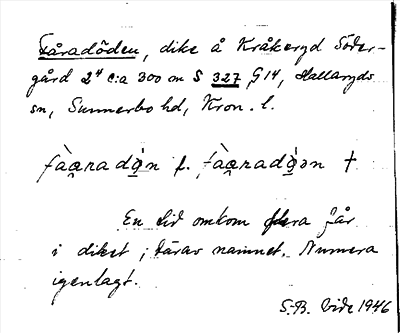 Fåradöden, dike å Kråkeryd Söder-
gård 2⁴ c:a 300 m S 327 G14, Hallaryds
sn, Sunnerbo hd, Kron. l.
fàa̯radò̱n f. fàa̯radò̱ən †
En tid omkom flera får
i diket; därav namnet. Numera
igenlagt.
S.B. Vide 1946